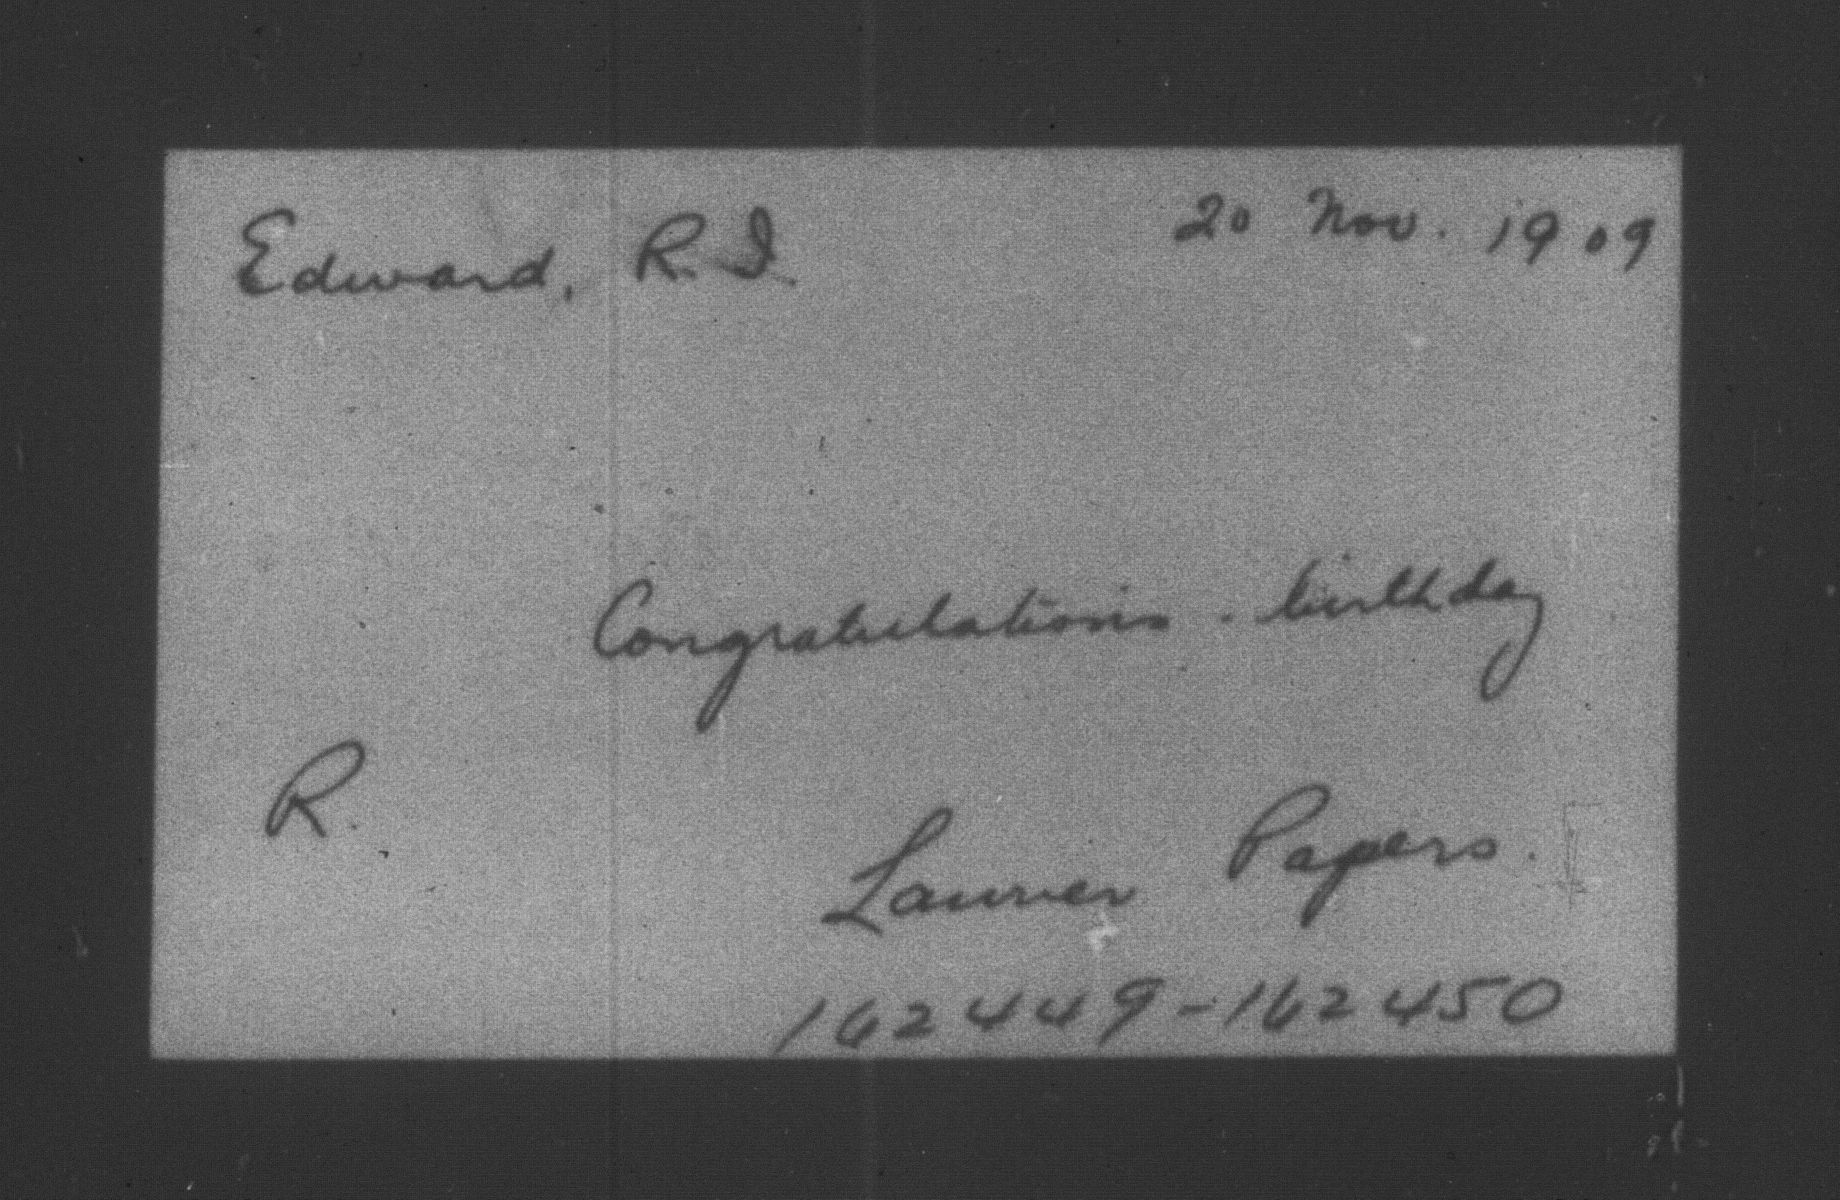 Edward, R. I. 20 Nov. 1909
Congratulations - birthday
R.
Laurier Papers.
162449-162450